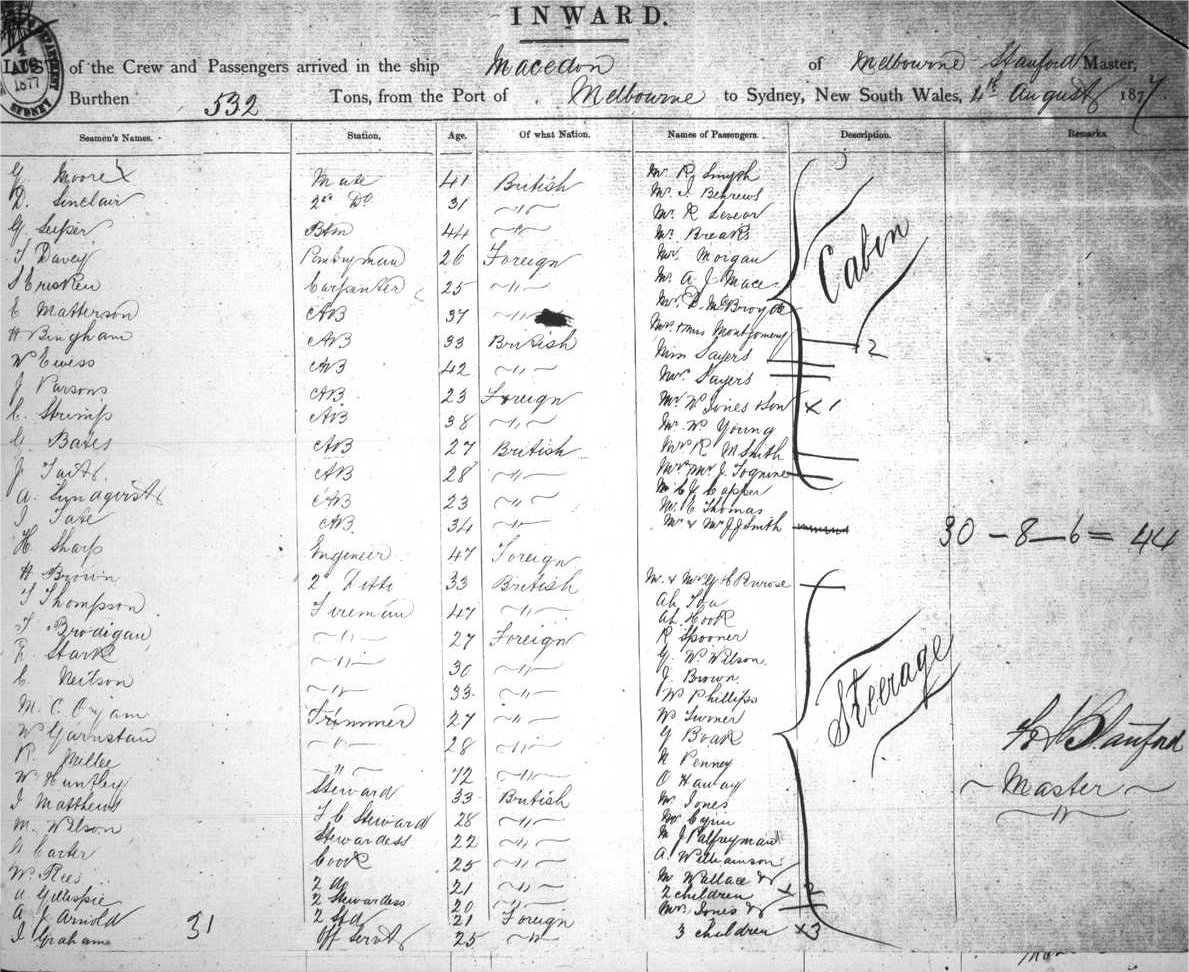 INWARD.
of the Crew and Passengers arrived in the ship Macedon of Melbourne Stanford Master,
Burthen 532 Tons, from the Port of Melbourne to Sydney, New South Wales, 4th August 1877
1877
SYDNEY
Seamen's Names. Station. Age. Of what Nation. Names of Passengers. Description. Remarks.
G Moore Mate 41 British Mr R Smyth
D. Sinclair 2nd Do 31 -"- Mr J. Behrews
G 44 -"- Mr Breaks
J Davey Pantryman 26 Foreign Mr Morgan
Carpenter 25 -"- Mr A J Mace
C Matterson AB 37 -"-
H Bingham AB 33 British Mr & Mrs Montgomery
W AB 42 -"- Miss Sayers 2
J Parsons AB 23 Foreign Mr Sayers
C. AB 38 -"- Mr W Jones & Son x1
G. Bates AB 27 British Mr W Young
J Tait AB 28 -"- Mrs R M Smith
A. Lundqvist AB 23 -"- Mr C J Capper
J Tate AB 34 -"- Mr E Thomas
Mr & Mrs J J Smith
Cabin
30 - 8 - 6 = 44
H Sharp Engineer 47 Foreign
H Brown 2 Ditto 33 British Mr & Mrs G H Penrose
J Thompson Fireman 47 -"- Ah
J Brodigan -"- 27 Foreign Ah Hook
F. Stark -"- 30 -"- R Spooner
C. Neilson -"- 33 -"- G. W. Wilson
M. C. Trimmer 27 -"- J. Brown
W -"- 28 -"- W Phillips
R. -"- 42 -"- W Turner
W Huntley Steward 33 British G Boak
J Matthews F C Steward 28 -"- N Penney
M. Wilson Stewardess 22 -"- O
Carter Cook 25 -"- Mr Jones
W. Rees 2 do 21 -"-
A Gillespie 2 Stewardess 20 -"- M J Palfreyman
A. J Arnold 2 Std 21 Foreign A. Williamson
J. Graham Off Servt 25 -"- M Wallace &
31
2 children x2
Mrs Jones &
3 children x3
Steerage
Stanford
Master
-"-